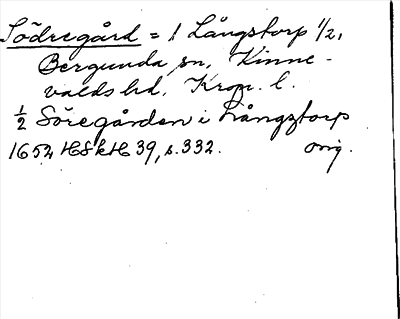 Södregård = 1 Långstorp 1/2,
Bergunda sn, Kinne-
valds hd, Kron. l.
1/2 Söregården i Långztorp
1652 HSkH 39, s. 332. orig.